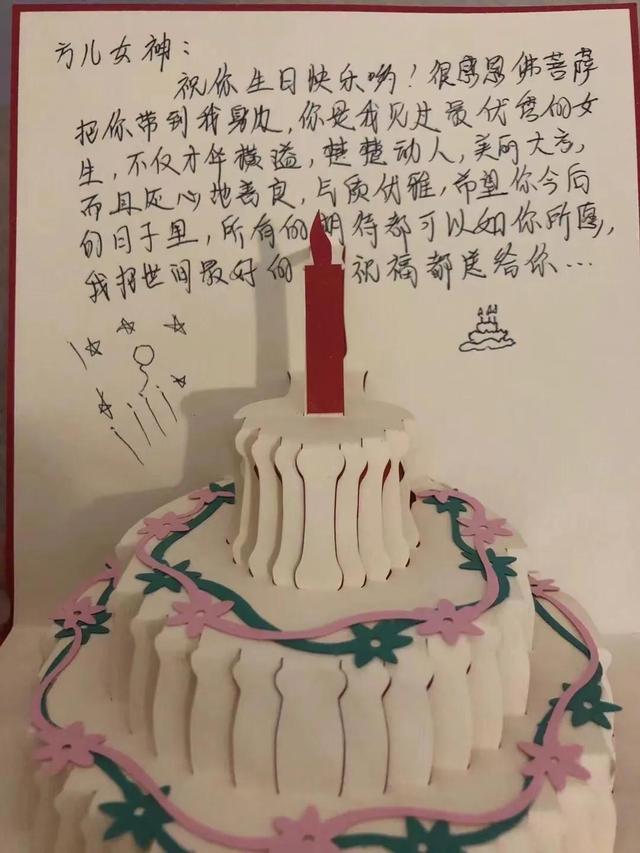 方儿女神：
祝你生日快乐哟！很感恩佛菩萨
把你带到我身边，你是我见过最优秀的女
生，不仅才华横溢，楚楚动人，美丽大方，
而且还心地善良，气质优雅，希望你今后
的日子里，所有的期待都可以如你所愿，
我把世间最好的祝福都送给你…